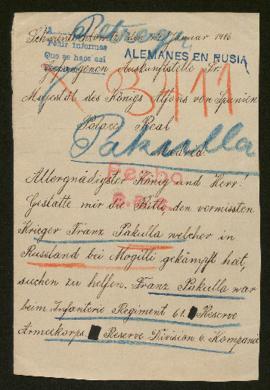 Januar 1916
Pedir informes
Que se haga así
ALEMANES EN RUSIA
Gefangenen Auskunftstelle Sr.
3111
Majestät des Königs Alfons von Spanien
Palacio Real
Pakulla
Madrid
Allergnädigster König und Herr!
Gestatte mir die Bitte, den vermissten
Krieger Franz Pakulla welcher in
Russland bei Mogilli gekämpft hat,
suchen zu helfen. Franz Pakulla war
beim Infanterie Regiment 61. Reserve
Armeekorps Reserve Division 6. Kompanie